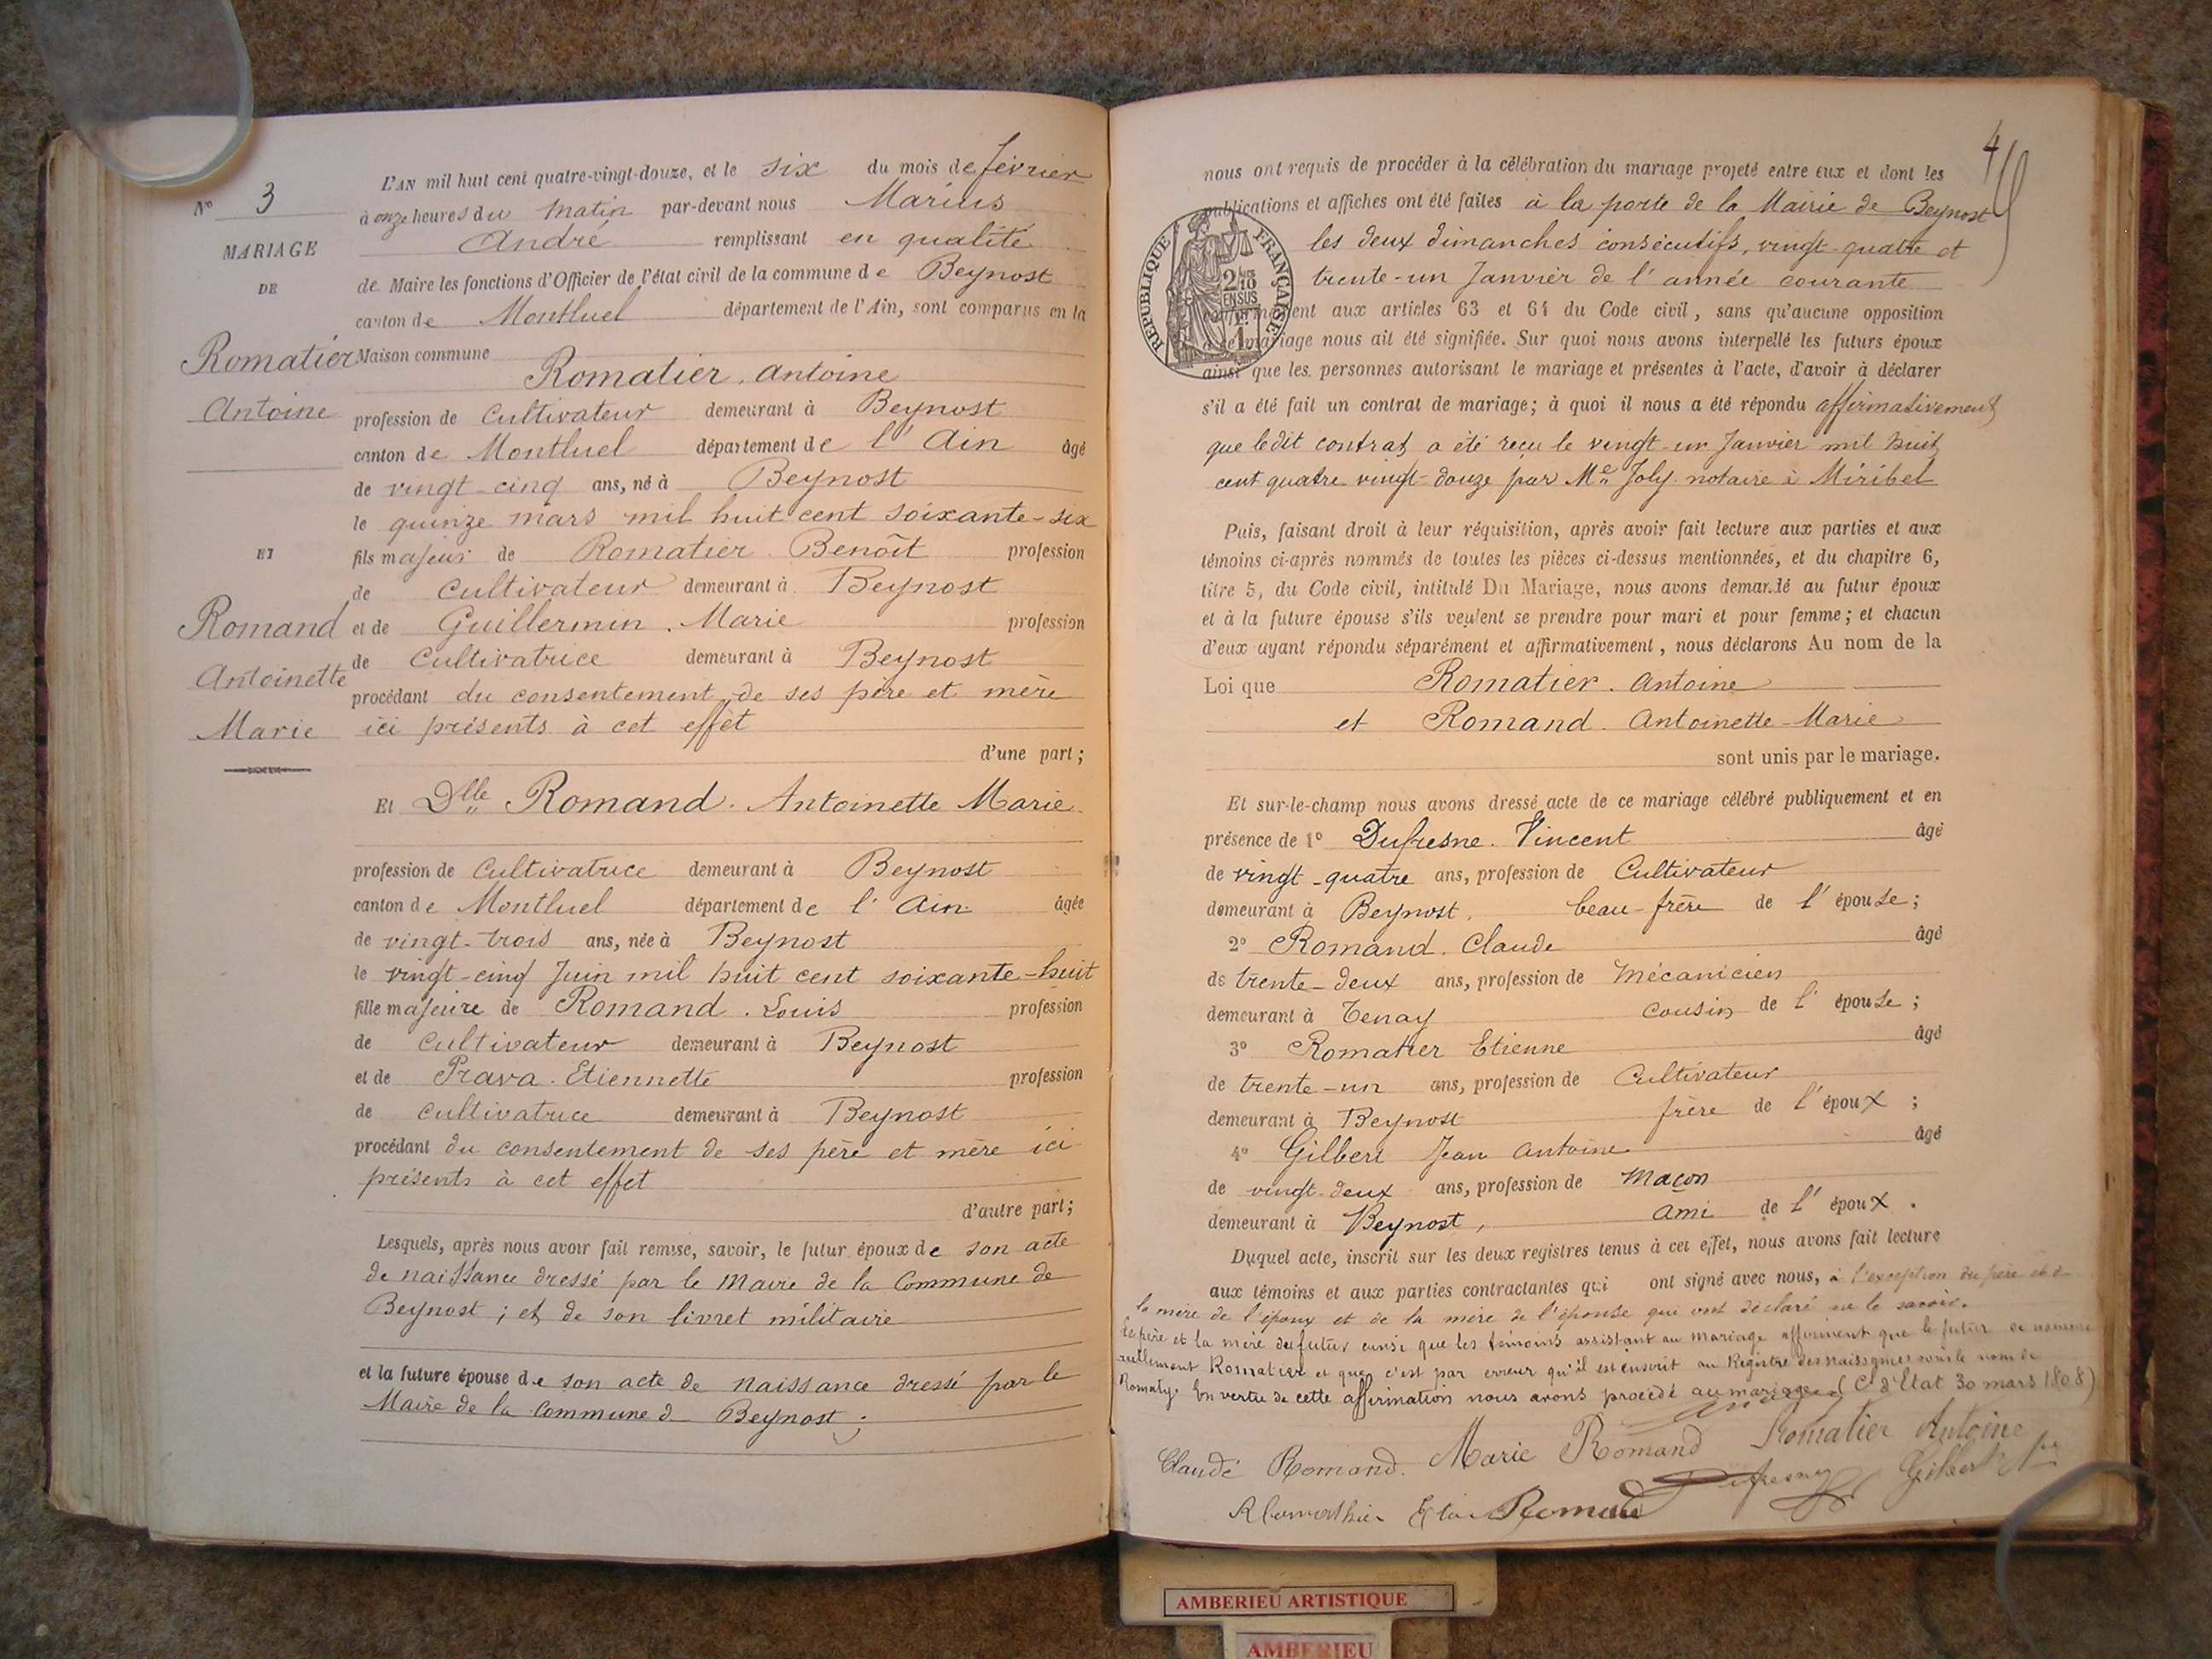 N° 3
MARIAGE
DE
Romatier
Antoine
ET
Romand
Antoinette
Marie
L'AN mil huit cent quatre-vingt-douze, et le six du mois de février
à onze heures du matin par-devant nous Marius
André remplissant en qualité
de Maire les fonctions d'Officier de l'état civil de la commune de Beynost
canton de Montluel département de l'Ain, sont comparus en la
Maison commune
Romatier. Antoine
profession de Cultivateur demeurant à Beynost
canton de Montluel département de l'Ain âgé
de vingt-cinq ans, né à Beynost
le quinze mars mil huit cent soixante-six
fils majeur de Romatier Benoît profession
de Cultivateur demeurant à Beynost
et de Guillermin. Marie profession
de Cultivatrice demeurant à Beynost
procédant du consentement de ses père et mère
ici présents à cet effet
d'une part;
Et Dlle Romand. Antoinette Marie
profession de Cultivatrice demeurant à Beynost
canton de Montluel département de l'Ain âgée
de vingt-trois ans, née à Beynost
le vingt-cinq Juin mil huit cent soixante-huit
fille majeure de Romand. Louis profession
de Cultivateur demeurant à Beynost
et de Prava. Etiennette profession
de Cultivatrice demeurant à Beynost
procédant du consentement de ses père et mère ici
présents à cet effet
d'autre part;
Lesquels, après nous avoir fait remise, savoir, le futur époux de son acte
de naissance dressé par le Maire de la Commune de
Beynost; et de son livret militaire
et la future épouse de son acte de naissance dressé par le
Maire de la Commune d Beynost;
4
nous ont requis de procéder à la célébration du mariage projeté entre eux et dont les
publications et affiches ont été faites à la porte de la Mairie de Beynost
les deux dimanches consécutifs, vingt-quatre et
trente-un Janvier de l'année courante
REPUBLIQUE FRANÇAISE
2/10 EN SUS
aux articles 63 et 64 du Code civil, sans qu'aucune opposition
mariage nous ait été signifiée. Sur quoi nous avons interpellé les futurs époux
ainsi que les personnes autorisant le mariage et présentes à l'acte, d'avoir à déclarer
s'il a été fait un contrat de mariage; à quoi il nous a été répondu affirmativement
que ledit contrat a été reçu le vingt-un Janvier mil huit
cent quatre vingt-douze par Me Joly notaire à Miribel
Puis, faisant droit à leur réquisition, après avoir fait lecture aux parties et aux
témoins ci-après nommés de toutes les pièces ci-dessus mentionnées, et du chapitre 6,
titre 5, du Code civil, intitulé Du Mariage, nous avons demandé au futur époux
et à la future épouse s'ils veulent se prendre pour mari et pour femme; et chacun
d'eux ayant répondu séparément et affirmativement, nous déclarons Au nom de la
Loi que Romatier. Antoine
et Romand. Antoinette-Marie
sont unis par le mariage.
Et sur-le-champ nous avons dressé acte de ce mariage célébré publiquement et en
présence de 1° Dufresne. Vincent âgé
de vingt-quatre ans, profession de Cultivateur
demeurant à Beynost, beau-frère de l'épouse;
2° Romand. Claude âgé
de trente-deux ans, profession de Mécanicien
demeurant à Tenay cousin de l'épouse;
3° Romatier Etienne âgé
de trente-un ans, profession de Cultivateur
demeurant à Beynost frère de l'époux;
4° Gilbert Jean Antoine âgé
de vingt-deux ans, profession de Maçon
demeurant à Beynost, ami de l'époux.
Duquel acte, inscrit sur les deux registres tenus à cet effet, nous avons fait lecture
aux témoins et aux parties contractantes qui ont signé avec nous, à l'exception du père et de
la mère de l'époux et de la mère de l'épouse qui ont déclaré ne le savoir.
Le père et la mère du futur ainsi que les témoins assistant au mariage affirment que le futur se nomme
réellement Romatier et que c'est par erreur qu'il est inscrit au Registre des naissances sous le nom de
Romaty. En vertu de cette affirmation nous avons procédé au mariage (C. d'Etat 30 mars 1808)
André
Claude Romand. Marie Romand Romatier Antoine
Dufresne Gilbert
Romand
AMBERIEU ARTISTIQUE
AMBERIEU